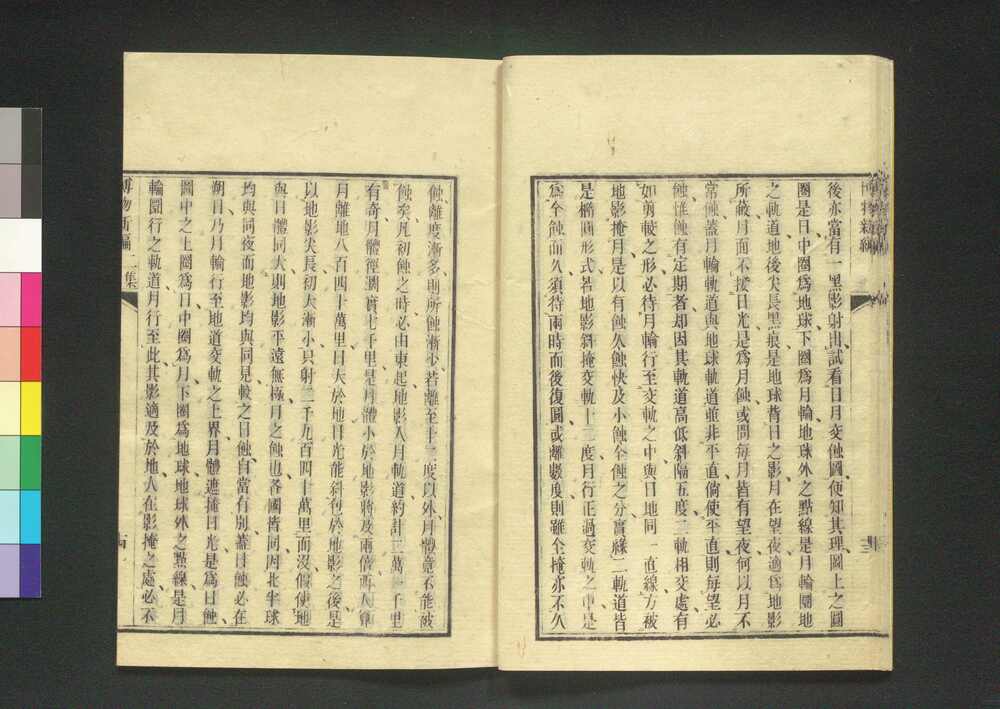 博物新編
後亦當有一黑影射出試看日月交蝕圖便知其理圖上之圓
圈是日中圈爲地球下圈爲月輪地球外之點線是月輪圜地
之軌道地後尖長黑痕是地球背日之影月在望夜適爲地影
所蔽月面不接日光是爲月蝕或問每月皆有望夜何以月不
常蝕蓋月輪軌道與地球軌道並非平直倘使平直則每望必
蝕惟蝕有定期者却因其軌道高低斜隔五度二軌相交處有
如剪鉸之形必待月輪行至交軌之中與日地同一直線方被
地影掩月是以有蝕久蝕快及小蝕全蝕之分實緣二軌道皆
是橢圓形式若地影斜掩交軌十二度月行正過交軌之中是
爲全蝕而久須待兩時而後復圓或離數度則雖全掩亦不久
蝕離度漸多則所蝕漸少若離至十二度以外月體竟不能被
蝕矣凡初蝕之時必由東起地影入月軌道約計三萬一千里
有奇月體徑濶實七千里是月體小於地影將及兩倍而大
月離地八百四十萬里日大於地日光能斜包於地影之後是
以地影尖長初大漸小只射二千九百四十萬里而沒假使地
與日體同大則地影平遠無極月之蝕也各國皆同因北半球
均與同夜而地影均與同見較之日蝕自當有別蓋日蝕必在
朔日乃月輪行至地道交軌之上界月體遮掩日光是爲日蝕
圖中之上圈爲日中圈爲月下圈爲地球地球外之點線是月
輪圜行之軌道月行至此其影適及於地人在影掩之處必不
博物新編二集